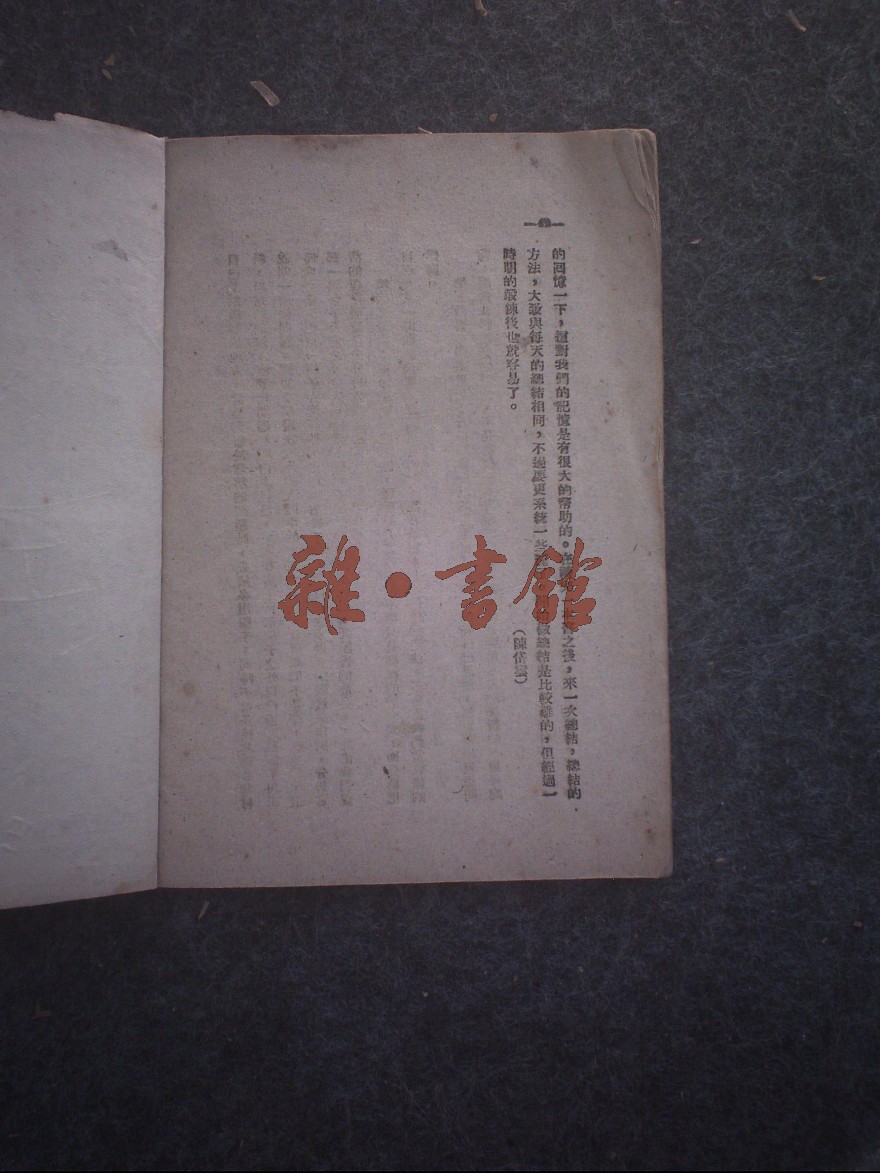 的回憶一下，這對我們的記憶是有很大的幫助的。在之後，來一次總結，總結的
方法，大致與每天的總結相同，不過要更系統一些做總結是比較難的，但經過一
時期的鍛鍊後也就容易了。
雜・書館